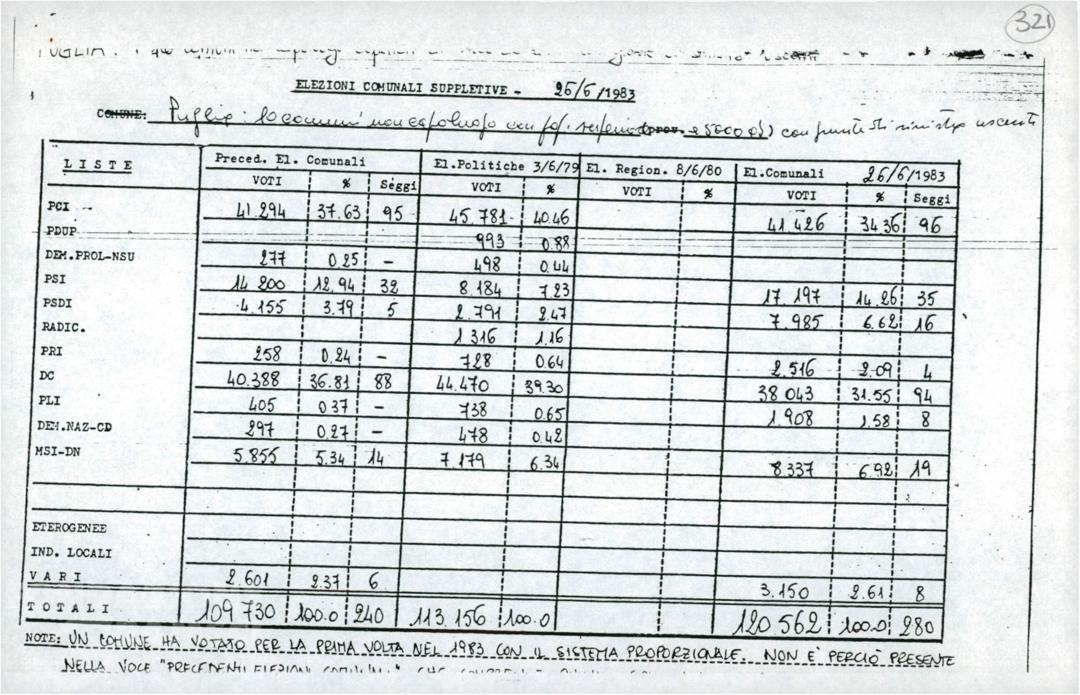 321
PUGLIA :
ELEZIONI COMUNALI SUPPLETIVE - 26/6/1983
COMUNE: Puglia: comuni non capoluogo con pop. con giunte di sinistra uscenti
LISTE Preced. El. Comunali El.Politiche 3/6/79 El. Region. 8/6/80 El.Comunali 26/6/1983
VOTI % Seggi VOTI % VOTI % VOTI % Seggi
PCI 41.294 37.63 95 45.781 40.46 41.426 34.36 96
PDUP 993 0.88
DEM.PROL-NSU 277 0.25 - 498 0.44
PSI 14.200 12.94 32 8.184 7.23 17.197 14.26 35
PSDI 4.155 3.79 5 2.791 2.47 7.985 6.62 16
RADIC. 1316 1.16
PRI 258 0.24 - 728 0.64 2.516 2.09 4
DC 40.388 36.81 88 44.470 39.30 38 043 31.55 94
PLI 405 0.37 - 738 0.65 1.908 1.58 8
DEM.NAZ-CD 297 0.27 - 478 0.42
MSI-DN 5.855 5.34 14 7.179 6.34 8337 6.92 19
ETEROGENEE
IND. LOCALI
VARI 2.601 2.37 6 3.150 2.61 8
TOTALI 109 730 100.0 240 113.156 100.0 120.562 100.0 280
NOTE: UN COMUNE HA VOTATO PER LA PRIMA VOLTA NEL 1983 CON IL SISTEMA PROPORZIONALE. NON E' PERCIÒ PRESENTE
NELLA VOCE "PRECEDENTI ELEZIONI COMUNALI" CHE